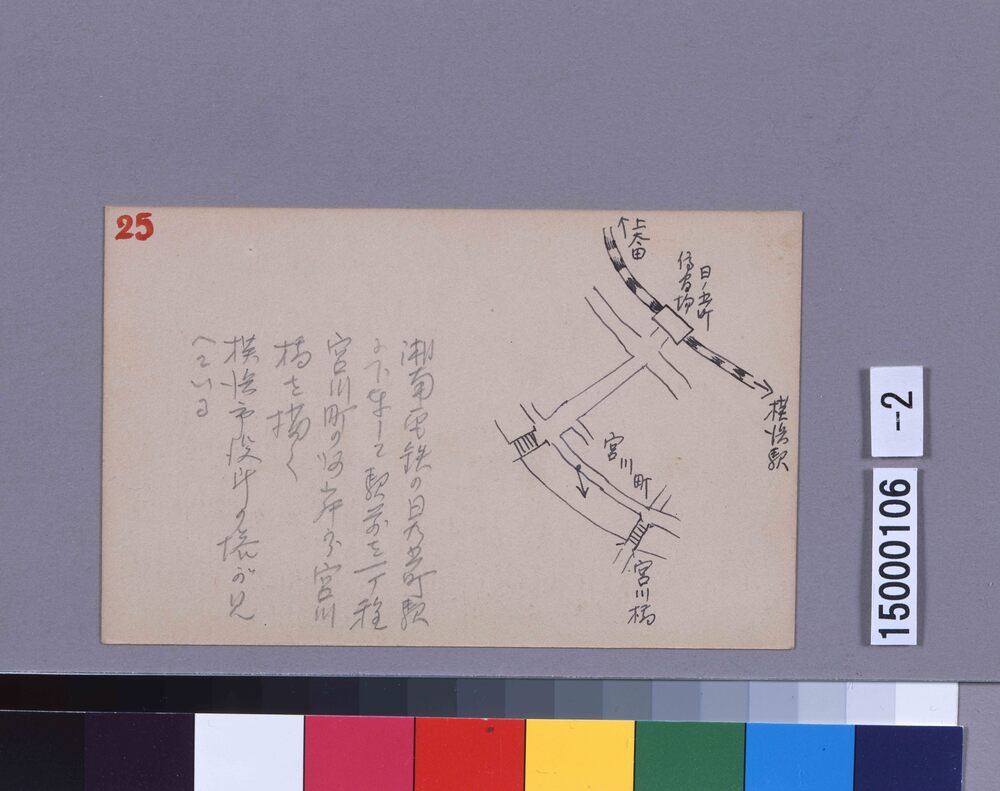 25
↑上大岡
日ノ出町
停留場
横浜駅
宮川町
宮川橋
湘南電鉄の日乃出町駅
より下車して駅前を一丁程
宮川町の河岸から宮川
橋を描く
横浜市役所の塔が見
へている
-2
15000106